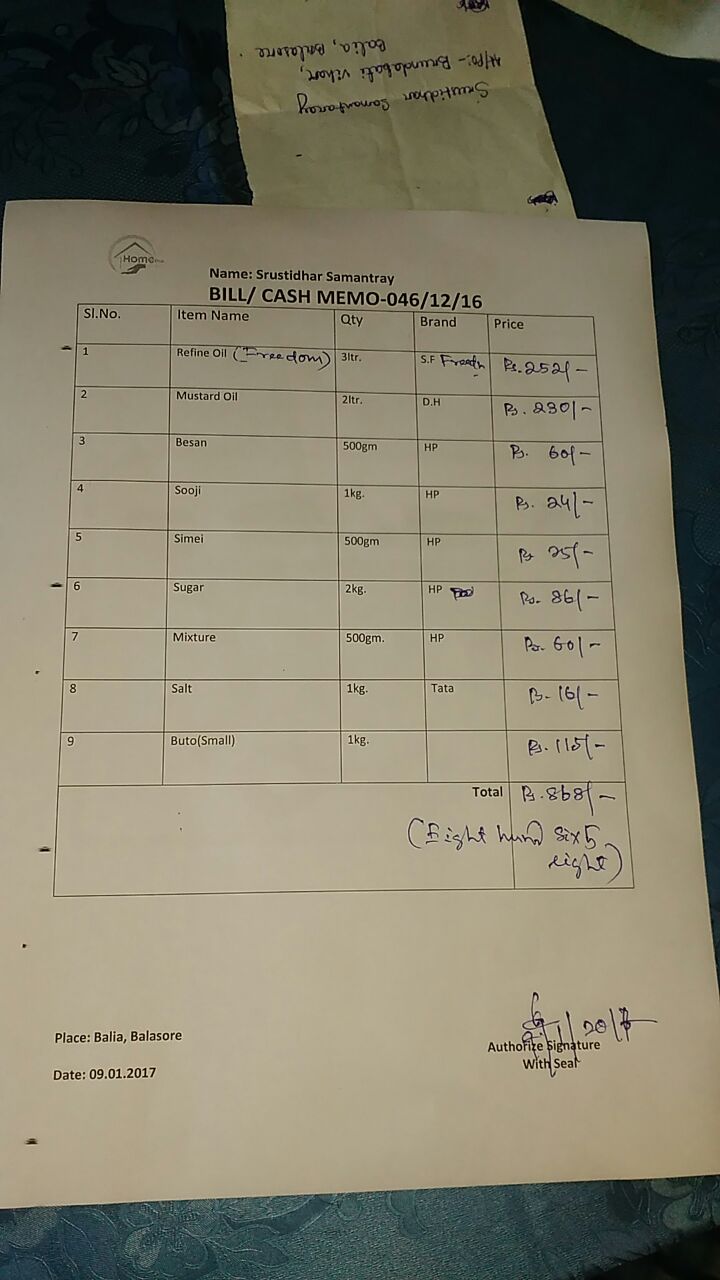 Srustidhar Samantaray
At/Po:- Brundabati vihar,
Balia, Balasore
Home
Name: Srustidhar Samantray
BILL/ CASH MEMO-046/12/16
Sl.No. Item Name Qty Brand Price
1 Refine Oil (Freedom) 3ltr. S.F Freedm Rs.252/-
2 Mustard Oil 2ltr. D.H Rs. 230/-
3 Besan 500gm HP Rs. 60/-
4 Sooji 1kg. HP Rs. 24/-
5 Simei 500gm HP Rs 25/-
6 Sugar 2kg. HP Rs. 86/-
7 Mixture 500gm. HP Rs. 60/-
8 Salt 1kg. Tata Rs. 16/-
9 Buto(Small) 1kg. Rs. 115/-
Total Rs.868/-
(Eight hund six5
eight)
Place: Balia, Balasore
Authorize Signature
With Seal
Date: 09.01.2017